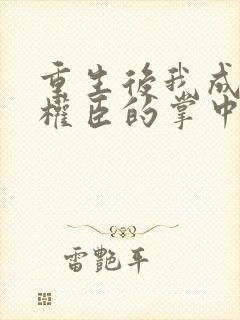 重生後我成
權臣的掌中
雷艷平